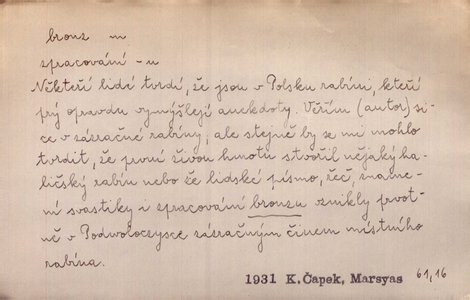 bronz m
zpracování -u
Někteří lidé tvrdí, že jsou v Polsku rabíni, kteří
prý opravdu vymýšlejí anekdoty. Věřím (autor) si-
ce v zázračné rabíny, ale stejně by se mi mohlo
tvrdit, že první živou hmotu stvořil nějaký ha-
ličský rabín nebo že lidské písmo, řeč, zname-
ní svastiky i zpracování bronzu vznikly prvot-
ně v Podwoloczysce zázračným činem místního
rabína.
1931 K. Čapek, Marsyas 61,16